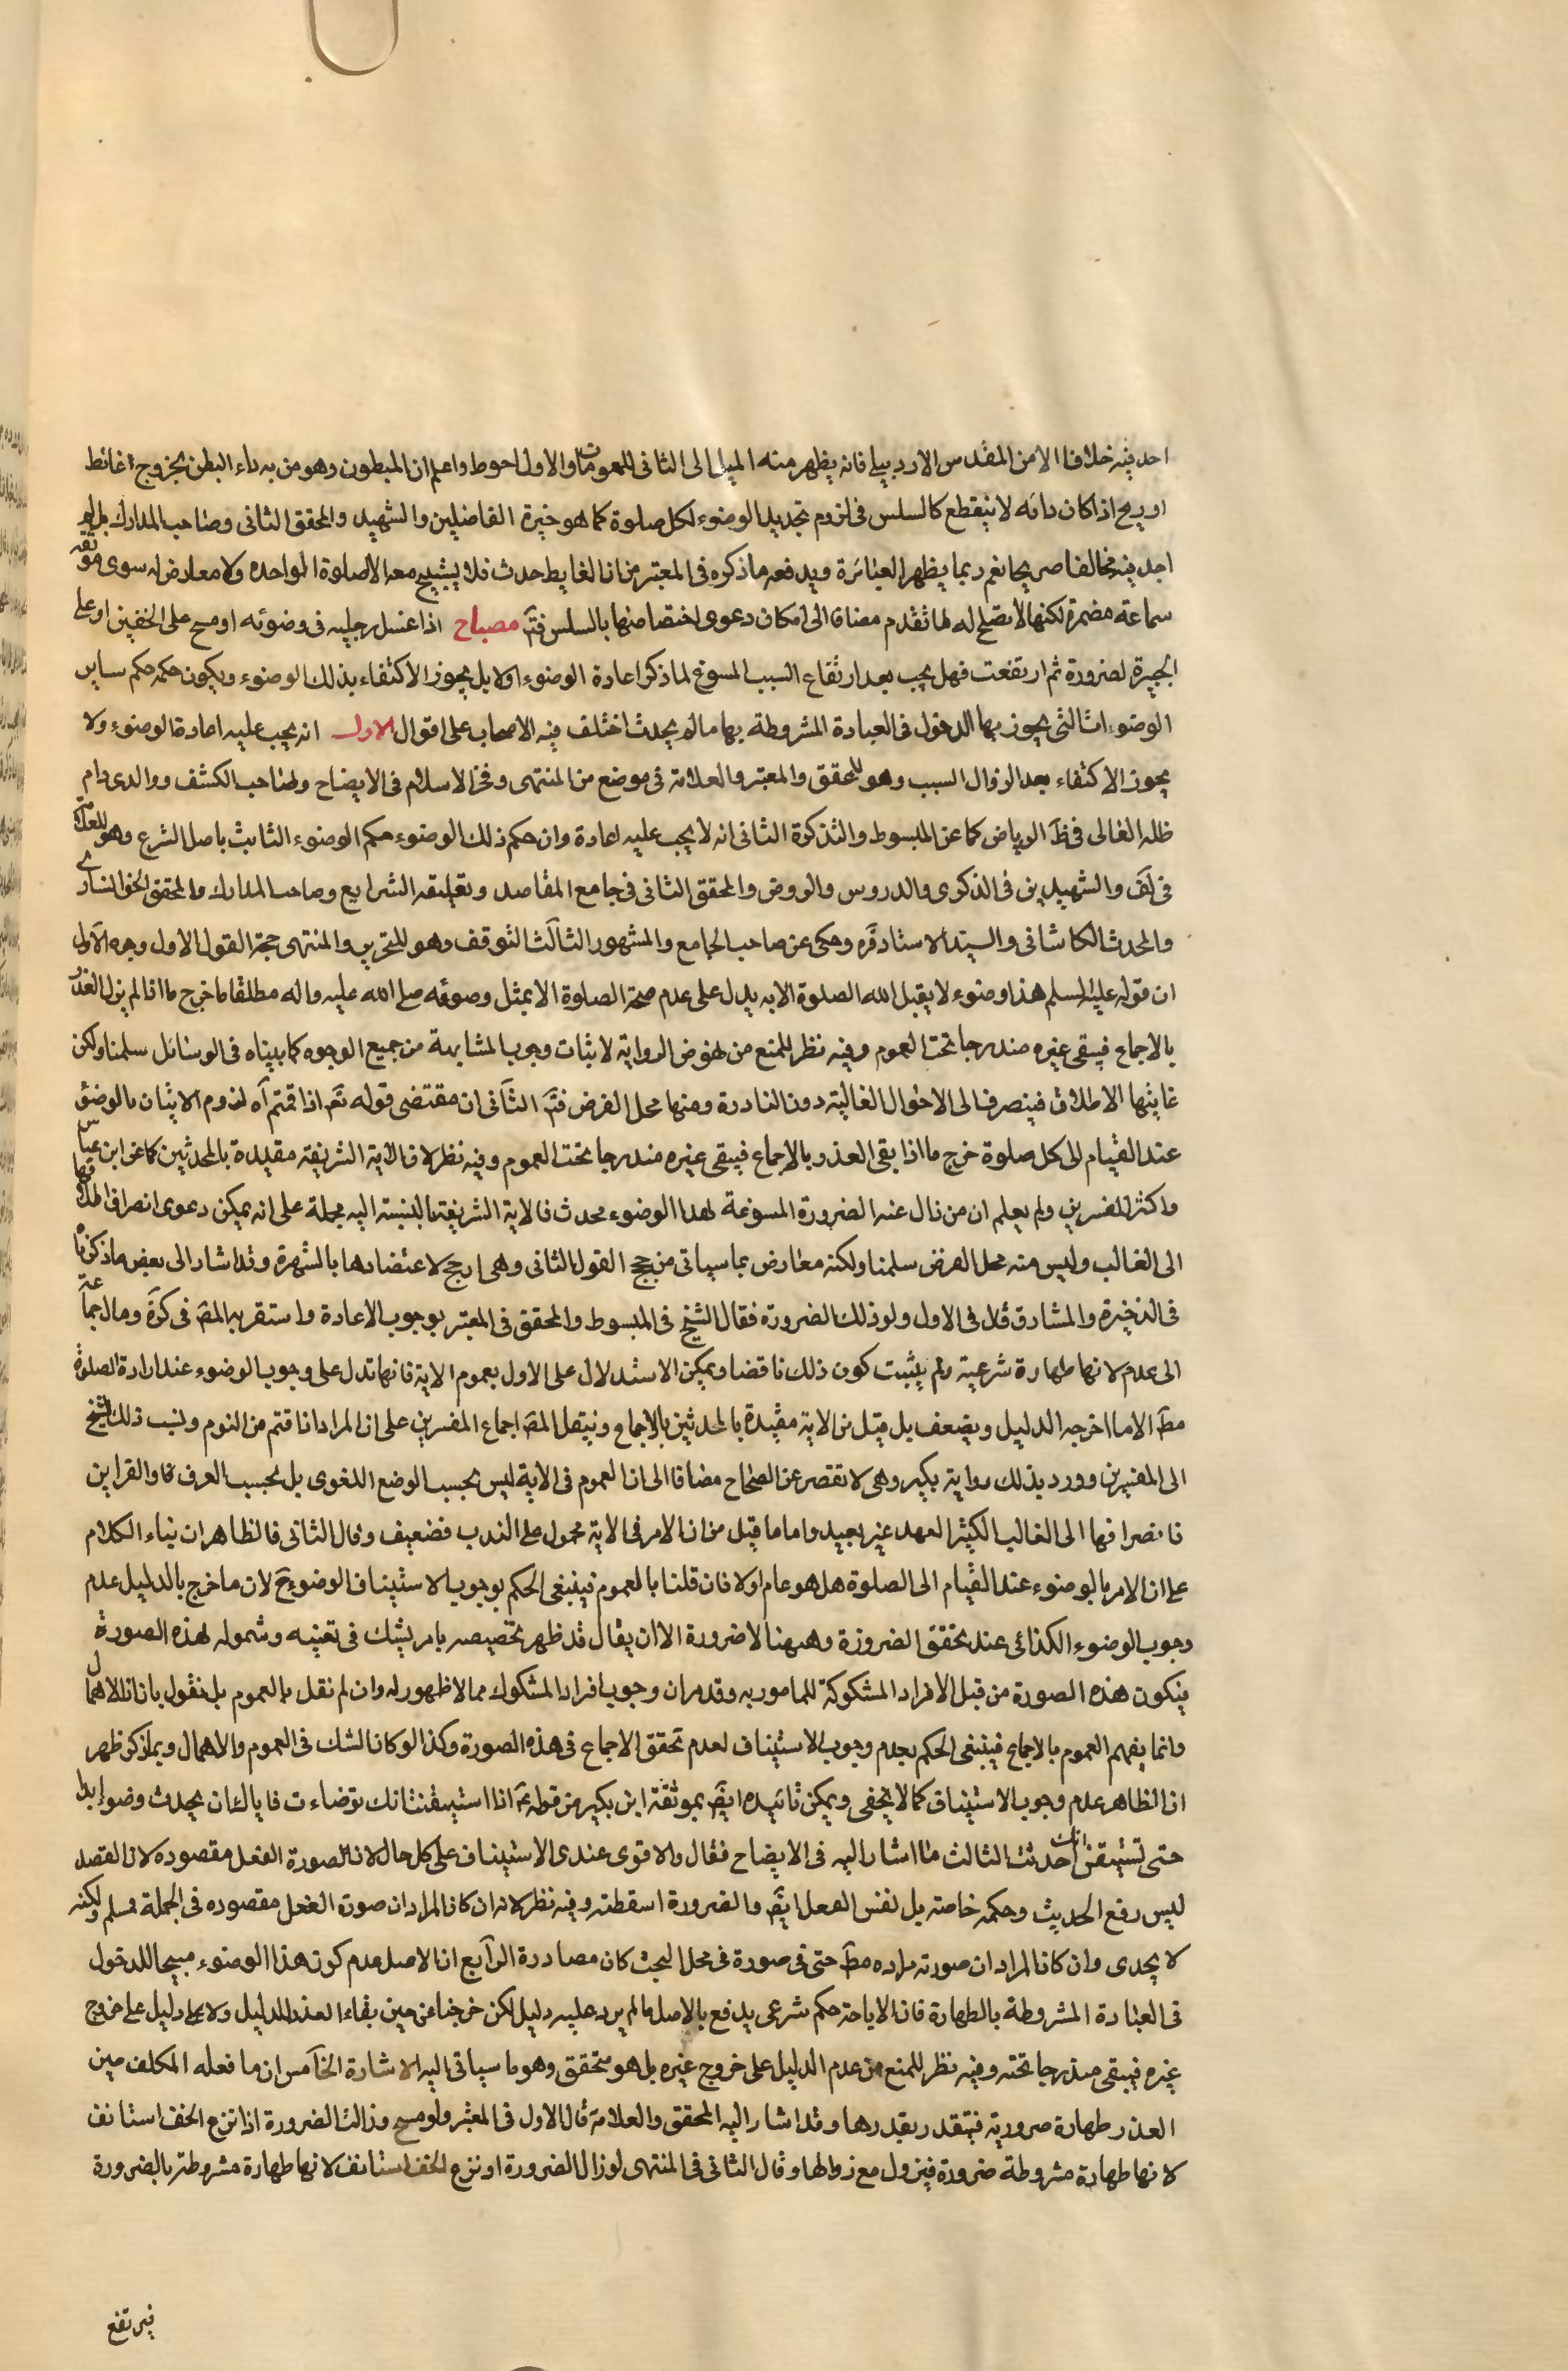 احد فيه خلافا الا من المقدس الاردبيلي فانه يظهر منه الميل الى الثاني للعمومات والاول احوط واعلم ان المبطون وهو من به داء البطن بخروج غائط
او ريح اذا كان دائمه لا ينقطع كالسلس في لزوم تجديد الوضوء لكل صلوة كما هو خيرة الفاضلين والشهيد والمحقق الثاني وصاحب المدارك بل لم
اجد فيه مخالفا صريحا نعم ربما يظهر العبائرة ويدفعه ما ذكره في المعتبر من ان الغايط حدث فلا يستبيح معه الا الصلوة الواحده ولا معارض له سوى موثقه
سماعة مضمرة لكنها لا تصلح له لما تقدم مضافا الى امكان دعوى اختصاصها بالسلس فتم مصباح اذا غسل رجليه في وضوئه او مسح على الخفين او على
الجبيرة لضرورة ثم ارتفعت فهل يجب بعد ارتفاع السبب المسوغ لما ذكر اعادة الوضوء اولا بل يجوز الاكتفاء بذلك الوضوء ويكون حكمه حكم ساير
الوضوءات التي يجوز بها الدخول في العبادة المشروطة بها ما لم يحدث اختلف فيه الاصحاب على اقوال الاول انه يجب عليه اعادة الوضوء ولا
يجوز الاكتفاء بعد الزوال السبب وهو للمحقق والمعتبر والعلامة في موضع من المنتهى وفخر الاسلام في الايضاح ولصاحب الكشف ووالدي دام
ظله العالى في ظَ الرياض كما عن المبسوط والتذكرة الثاني انه لا يجب عليه اعادة وان حكم ذلك الوضوء حكم الوضوء الثابت باصل الشرع وهو للعلامة
في لَف والشهيدين في الذكرى والدروس والروض والمحقق الثاني في جامع المقاصد وتعليقه الشرايع وصاحب المدارك والمحقق الخوانسارى
والمحدث الكاشاني والسيد الاستاد قَره وحكى عن صاحب الجامع والمشهور الثالَث التوقف وهو للتحرير والمنتهى حجة القول الاول وجوه الاَول
ان قوله عليه السلم هذا وضوء لا يقبل الله الصلوة الا به يدل على عدم صحة الصلوة الا بمثل وضوئه صلى الله عليه واله مطلقا ما خرج ما اذا لم يزل العذر
بالاجماع فيبقى غيره مندرجا تحت العموم وفيه نظر للمنع من نهوض الرواية لاثبات وجوب المشابهة من جميع الوجوه كما بيناه في الوسائل سلمنا ولكن
غايتها الاطلاق فينصرف الى الاحوال الغالبة دون النادرة ومنها محل الفرض فتم الثاَني ان مقتضى قوله تعَ اذا قمتم آه لزوم الاتيان بالوضوء
عند القيام الى كل صلوة خرج ما اذا بقى العذر بالاجماع فيبقى غيره مندرجا تحت العموم وفيه نظر لان الاية الشريفة مقيدة بالمحدثين كما عن ابن عباس
واكثر المفسرين ولم يعلم ان من زال عنه الضرورة المسوغة لهذا الوضوء محدث فالاية الشريفة بالنسبة اليه مجملة على انه يمكن دعوى انصراف اطلاقها
الى الغالب وليس منه محل الفرض سلمنا ولكنه معارض بما سياتي من حجج القول الثاني وهى ارجح لاعتضادها بالشهرة وقد اشار الى بعض ما ذكرناه
في الذخيرة والمشارق قال في الاول ولو ذلك لضرورة فقال الشيخ في المبسوط والمحقق في المعتبر بوجوب الاعادة واستقر به المصَ في كرَة ومال جماعة
الى عدم لانها طهارة شرعية ولم يثبت كون ذلك ناقضا ويمكن الاستدلال على الاول بعموم الاية فانها تدل على وجوب الوضوء عند ارادة الصلوة
مطَ الا ما اخرجه الدليل ويضعف بل قيل من الاية مقيدة بالمحدثين بالاجماع وينقل المصَ اجماع المفسرين على ان المراد اذا قتم من النوم ونسب ذلك الشيخ
الى المفسرين وورد بذلك رواية بكير وهى لا تقصر عن الصحاح مضافا الى ان العموم في الاية ليس بحسب الوضع اللغوى بل بحسب العرف والقراين
فانصرافها الى الغالب الكثير العهد غير بعيد واما ما قيل من ان الامر في الاية محمول على الندب فضعيف وقال الثاني فالظاهر ان بناء الكلام
على ان الامر بالوضوء عند القيام الى الصلوة هل هو عام اولا فان قلنا بالعموم فينبغى الحكم بوجوب الاستيناف الوضوء حَ لان ما خرج بالدليل عدم
وجوب الوضوء الكذائي عند تحقق الضرورة وهيهنا لا ضرورة الا ان يقال قد ظهر تخصيصه بامر يشك في تعينه وشموله لهذه الصورة
فيكون هذه الصورة من قبل الافراد المشكوكة للمامور به وقد مر ان وجوب افراد المشكوك مما لا ظهور له وان لم نقل بالعموم بل نقول بان اذا للاهمال
وانما يفهم العموم بالاجماع فينبغى الحكم بعدم وجوب الاستيناف لعدم تحقق الاجماع في هذه الصورة وكذا لو كان الشك في العموم والاهمال وبما ذكر ظهر
ان الظاهر عدم وجوب الاستيناف كما لا يخفى ويمكن تائيده ايضَ بموثقة ابن بكير من قوله عَ اذا استيقنت انك توضاءت فاياك ان تحدث وضوء ابدا
حتى تستيقن انك احدثت الثالث ما اشار اليه في الايضاح فقال والاقوى عندى الاستيناف على كل حال لان الصورة الفعل مقصوده لان القصد
ليس رفع الحديث وحكمه خاصة بل لنفس الفعل ايضَ والضرورة اسقطته وفيه نظر لانه ان كان المراد ان صورة الفعل مقصوده في الجملة فمسلم ولكنه
لا يجدى وان كان المراد ان صورته مراده مطَ حتى في صورة في محل البحث كان مصادرة الراَبع ان الاصل عدم كون هذا الوضوء مبيحا للدخول
في العبادة المشروطة بالطهارة فان الاباحة حكم شرعى يدفع بالاصل ما لم يرد عليه دليل لكن خرجنا عن حين بقاء العذر للدليل ولا دليل على خروج
غيره فيبقى مندرجا تحته وفيه نظر للمنع من عدم الدليل على خروج غيره بل هو متحقق وهو ما سياتي اليه الاشارة الخاَمس ان ما فعله المكلف حين
العذر طهارة ضرورية فيتقدر بقدرها وقد اشار اليه المحقق والعلامة قال الاول في المعتبر ولو مسح وزالت الضرورة اذا نزع الخف استانف
لانها طهارة مشروطة ضرورة فيزول مع زوالها وقال الثاني في المنتهى لو زال الضرورة او نزع الخف استانف لانها طهارة مشروطة بالضرورة
فيرتفع